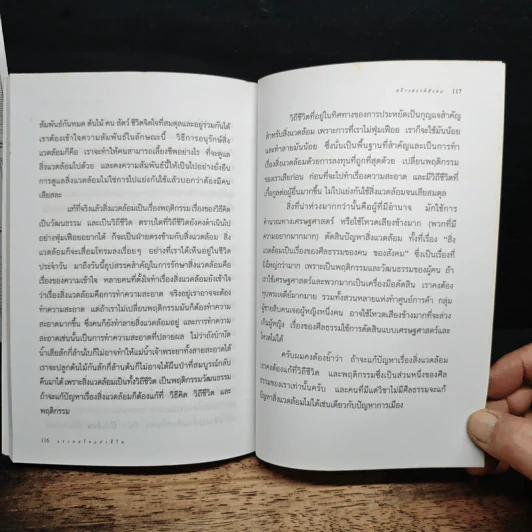 สัมพันธ์กันหมด ต้นไม้ คน สัตว์ ชีวิตจิตใจที่สมดุลและอยู่ร่วมกันได้
เราต้องเข้าใจความสัมพันธ์ในลักษณะนี้ วิธีการอนุรักษ์สิ่ง
แวดล้อมก็คือ เราจะทำให้คนสามารถเลี้ยงชีพอย่างไร ที่จะดูแล
สิ่งแวดล้อมไปด้วย และคงความสัมพันธ์นี้ให้เป็นไปอย่างยั่งยืน
การดูแลสิ่งแวดล้อมไม่ใช่การไปแย่งกันใช้แล้วบอกว่าต้องมีคน
เสียสละ
แท้ที่จริงแล้วสิ่งแวดล้อมเป็นเรื่องพฤติกรรม เรื่องของวิธีคิด
เป็นวัฒนธรรม และเป็นวิถีชีวิต ตราบใดที่วิถีชีวิตยังคงดำเนินไป
อย่างฟุ่มเฟือยอยู่ได้ ก็จะเป็นฝ่ายตรงข้ามกับสิ่งแวดล้อม สิ่ง
แวดล้อมก็จะเสื่อมโทรมลงเรื่อยๆ อย่างที่เราได้เห็นอยู่ในชีวิต
ประจำวัน มาถึงวันนี้อุปสรรคสำคัญในการรักษาสิ่งแวดล้อมคือ
เรื่องของความเข้าใจ หลายคนที่ตั้งใจทำเรื่องสิ่งแวดล้อมยังเข้าใจ
ว่าเรื่องสิ่งแวดล้อมคือการทำความสะอาด จริงอยู่เราอาจจะต้อง
ทำความสะอาด แต่ถ้าเราไม่เปลี่ยนพฤติกรรมมันก็ต้องทำความ
สะอาดมากขึ้น ซึ่งคนก็ยังทำลายสิ่งแวดล้อมอยู่ และการทำความ
สะอาดเช่นนั้นเป็นการทำความสะอาดที่ปลายผล ไม่ว่าถังบำบัด
น้ำเสียสักกี่ล้านใบก็ไม่อาจทำให้แม่น้ำเจ้าพระยาทั้งสายสะอาดได้
เราจะปลูกต้นไม้กันสักกี่ล้านต้นก็ไม่อาจได้ผืนป่าที่สมบูรณ์กลับ
คืนมาได้ เพราะสิ่งแวดล้อมเป็นทั้งวิถีชีวิต เป็นพฤติกรรมวัฒนธรรม
ถ้าจะแก้ปัญหาเรื่องสิ่งแวดล้อมก็ต้องแก้ที่ วิธีคิด วิถีชีวิต และ
พฤติกรรม
116
117
วิถีชีวิตที่อยู่ในทิศทางของการประหยัดเป็นกุญแจสำคัญ
สำหรับสิ่งแวดล้อม เพราะการที่เราไม่ฟุ่มเฟือย เราก็จะใช้มันน้อย
และทำลายมันน้อย ซึ่งนั่นเป็นพื้นฐานที่สำคัญและเป็นการทำ
เรื่องสิ่งแวดล้อมด้วยการลงทุนที่ถูกที่สุดด้วย เปลี่ยนพฤติกรรม
ของเราเสียก่อน ก่อนที่จะไปทำเรื่องความสะอาด และมีวิถีชีวิตที่
เกื้อกูลต่อผู้อื่นมากขึ้น ไม่ไปแย่งกันใช้สิ่งแวดล้อมจนเสียสมดุล
สิ่งที่น่าห่วงมากกว่านั้นคือผู้ที่มีอำนาจ มักใช้การ
คำนวณทางเศรษฐศาสตร์ หรือใช้โหวตเสียงข้างมาก (พวกที่มี
ความอยากมากมาก) ตัดสินปัญหาสิ่งแวดล้อม ทั้งที่เรื่อง “สิ่ง
แวดล้อมเป็นเรื่องของศีลธรรมของคน ของสังคม” ซึ่งเป็นเรื่องที่
ยิ่งใหญ่กว่ามาก เพราะเป็นพฤติกรรมและวัฒนธรรมของผู้คน ถ้า
เราใช้เศรษฐศาสตร์และพวกมากเป็นเครื่องมือตัดสิน เราคงต้อง
ทุบพระเจดีย์มากมาย รวมทั้งสวนหลายแห่งทำศูนย์การค้า กลุ่ม
ผู้ชายสิบคนเจอผู้หญิงหนึ่งคน อาจใช้โหวตเสียงข้างมากที่จะล่วง
เกินผู้หญิง เรื่องของศีลธรรมใช้การตัดสินแบบเศรษฐศาสตร์และ
โหวตไม่ได้
ครับผมคงต้องย้ำว่า ถ้าจะแก้ปัญหาเรื่องสิ่งแวดล้อม
เราคงต้องแก้ที่วิถีชีวิต และพฤติกรรมซึ่งเป็นส่วนหนึ่งของศีล
ธรรมของเราเท่านั้นครับ และคนที่มีแต่วิชาไม่มีศีลธรรมจะแก้
ปัญหาสิ่งแวดล้อมไม่ได้เช่นเดียวกับปัญหาการเมือง